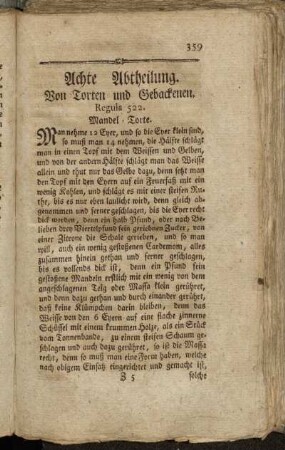 359
Achte Abtheilung.
Von Torten und Gebackenen.
Regula 522.
Mandel-Torte.
Man nehme 12 Eyer, und so die Eyer klein sind,
so muß man 14 nehmen, die Hälfte schlägt
man in einen Topf mit dem Weissen und Gelben,
und von der andern Hälfte schlägt man das Weisse
allein und thut nur das Gelbe dazu, denn setzt man
den Topf mit den Eyern auf ein Feuerfaß mit ein
wenig Kohlen, und schlägt es mit einer steifen Ru-
the, bis es nur eben laulicht wird, denn gleich ab-
genommen und ferner geschlagen, bis die Eyer recht
dick werden, denn ein halb Pfund, oder nach Be-
lieben drey Viertelpfund fein geriebnen Zucker, von
einer Zitrone die Schale gerieben, und so man
will, auch ein wenig gestoßenen Cardemom, alles
zusammen hinein gethan und ferner geschlagen,
bis es vollends dick ist, denn ein Pfund fein
gestoßene Mandeln erstlich mit ein wenig von dem
angeschlagenen Teig oder Massa klein gerühret,
und denn dazu gethan und durch einander gerührt,
daß keine Klümpchen darin bleiben, denn das
Weisse von den 6 Eyern auf eine flache zinnerne
Schüssel mit einem krummen Holze, als ein Stück
vom Tonnenbande, zu einem steifen Schaum ge-
schlagen und auch dazu gerühret, so ist die Massa
recht, denn so muß man eine Form haben, welche
nach obigem Einsatz eingerichtet und gemacht ist,
Z 5 solche